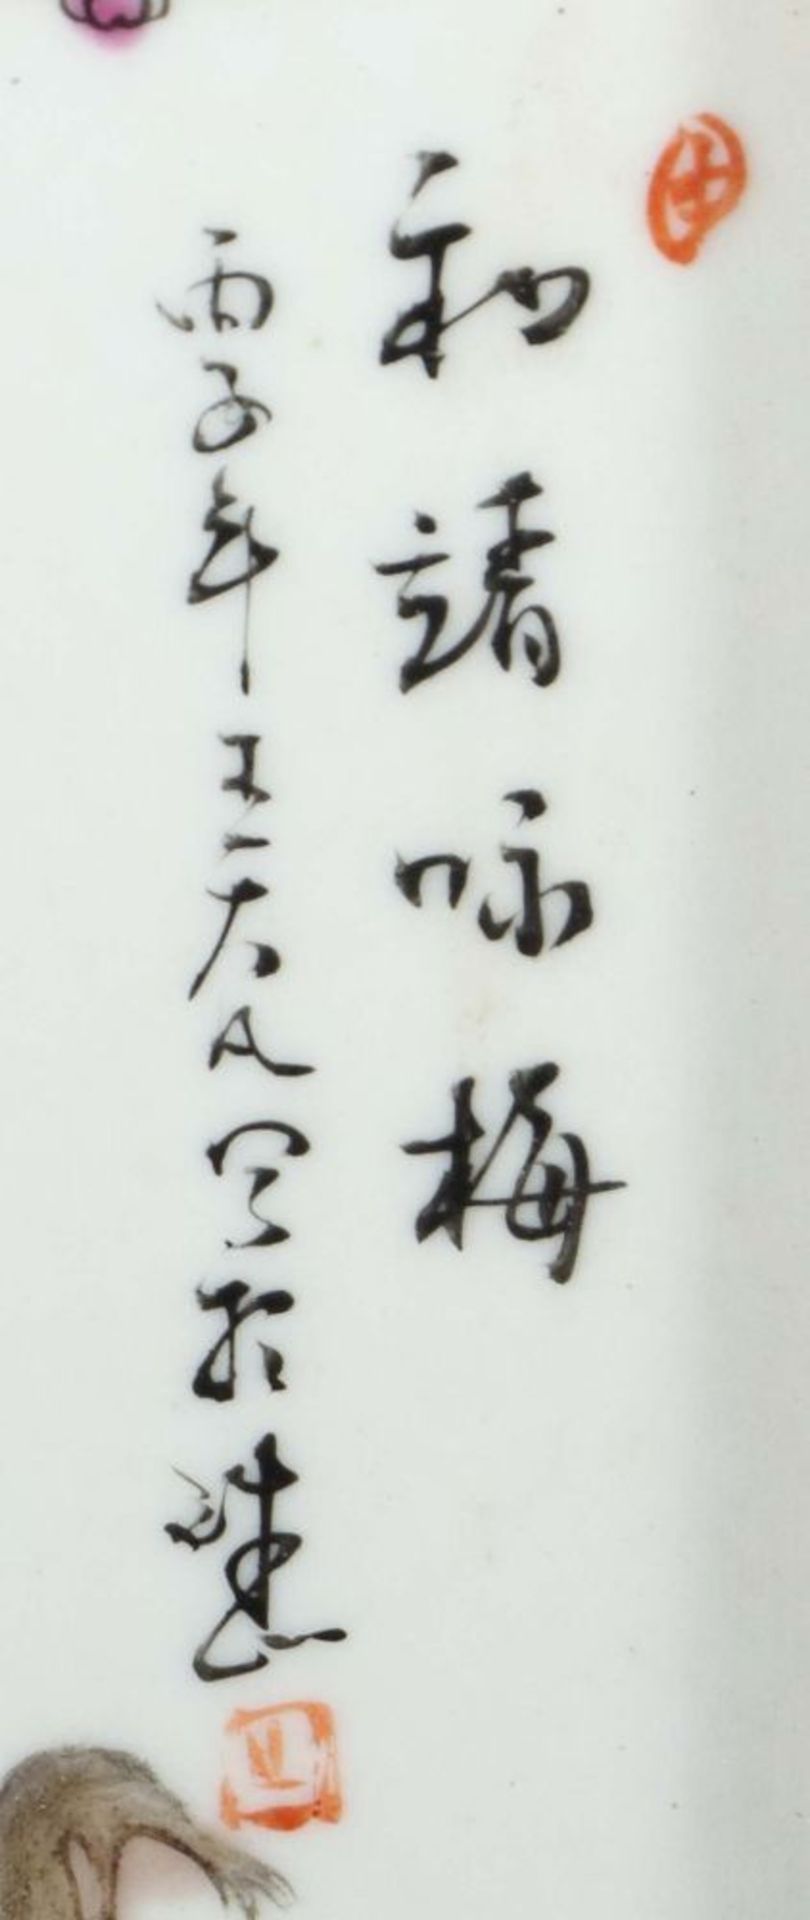 和靖咏梅
丙子年王大凡写於珠山